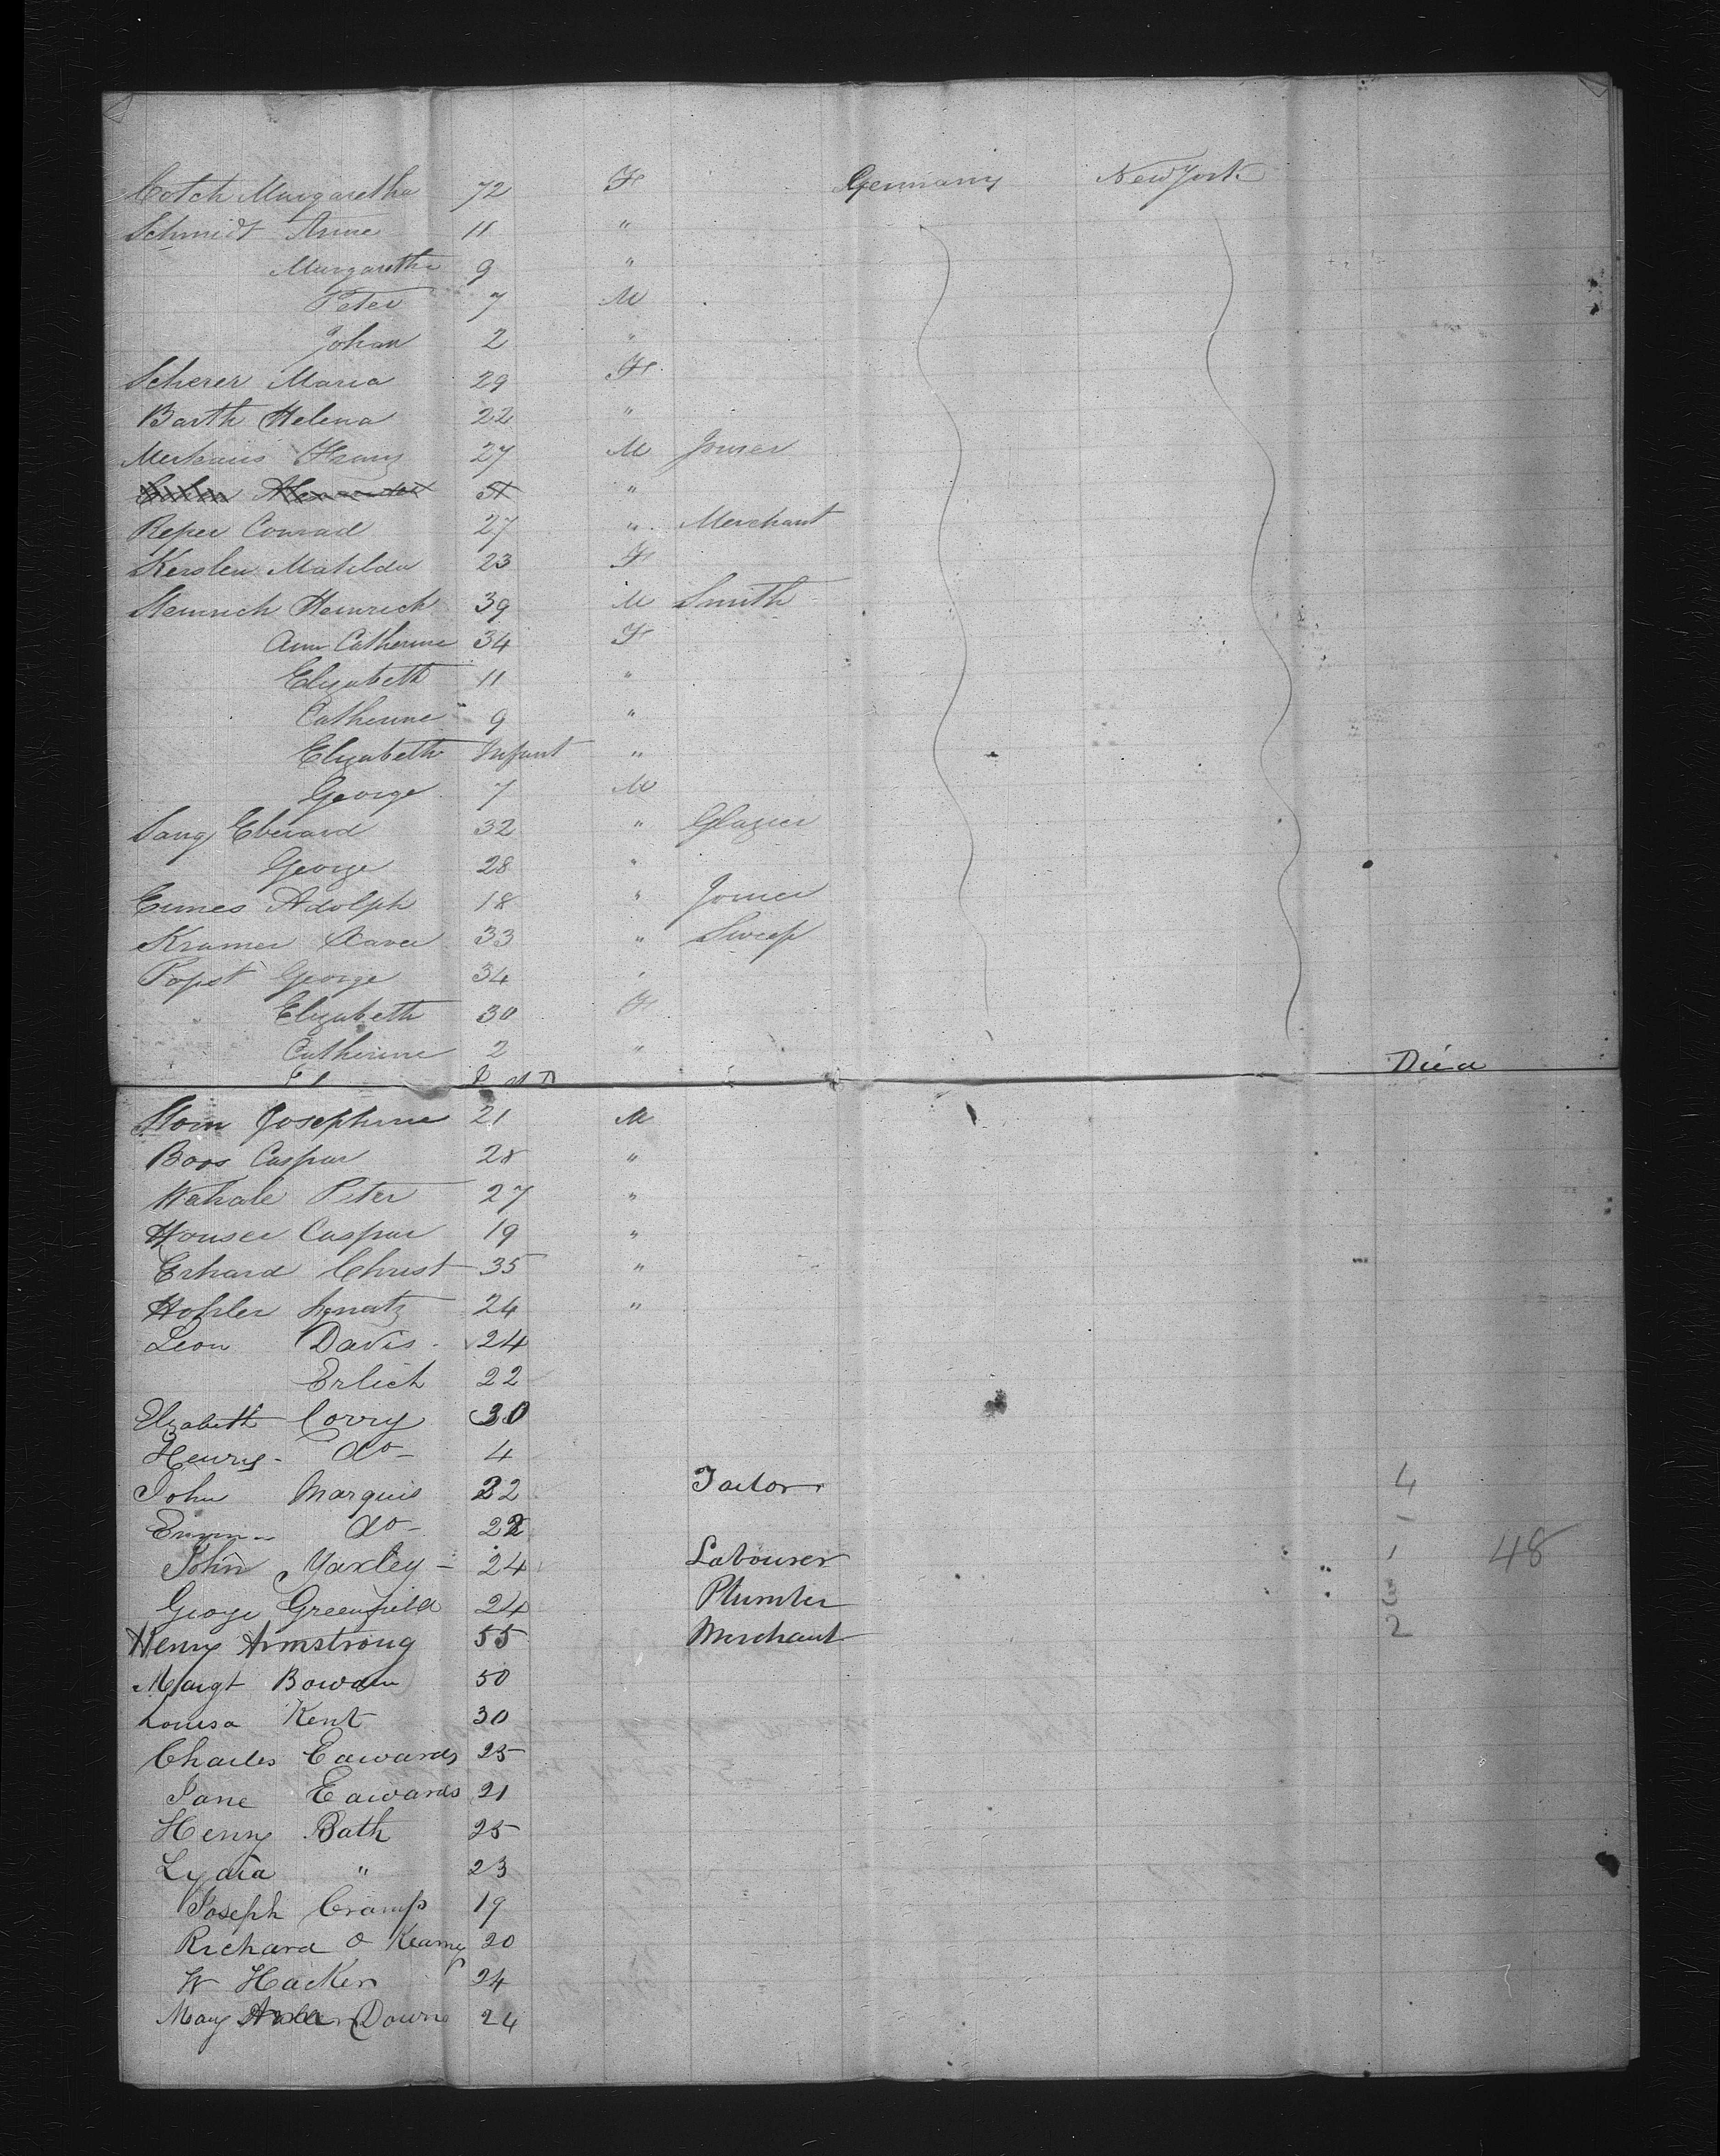 Cotch Margaretha 72 F Germany New York
Schmidt Anne 11 "
Margaretha 9 "
Peter 7 M
Johan 2 "
Scherer Maria 29 F
Barth Helena 22 "
Franz 27 M Joiner
"
Reper Conrad 27 " Merchant
Kerslen Matilda 23 F
Heinrich 39 M Smith
Ann Catherine 34 F
Elizabeth 11 "
Catherine 9 "
Elizabeth Infant "
George 7 M
Lang Eberard 32 " Glazier
George 28 "
Adolph 18 " Joiner
Kramer Xaver 33 " Sweep
Popst George 34 "
Elizabeth 30 F
Catherine 2 "
Died
Josephine 21 M
Boos Caspar 28 "
Wahale Peter 27 "
Houser Caspar 19 "
Erhard Christ 35 "
Ignatz 24 "
Leon Davis 24
Erlich 22
Elizabeth Corry 30
Henry - Do - 4
John Marquis 22 Tailor 4
Emma Do - 22 -
John Yaxley - 24 Labourer 1 48
George Greenfield 24 Plumber 3
Henry Armstrong 55 Merchant 2
Margt Bowden 50
Louisa Kent 30
Charles Edwards 25
Jane Edwards 21
Henry Bath 25
Lydia " 23
Joseph Cramp 19
Richard O Kearney 20
W Hacker 24
Mary Downs 24